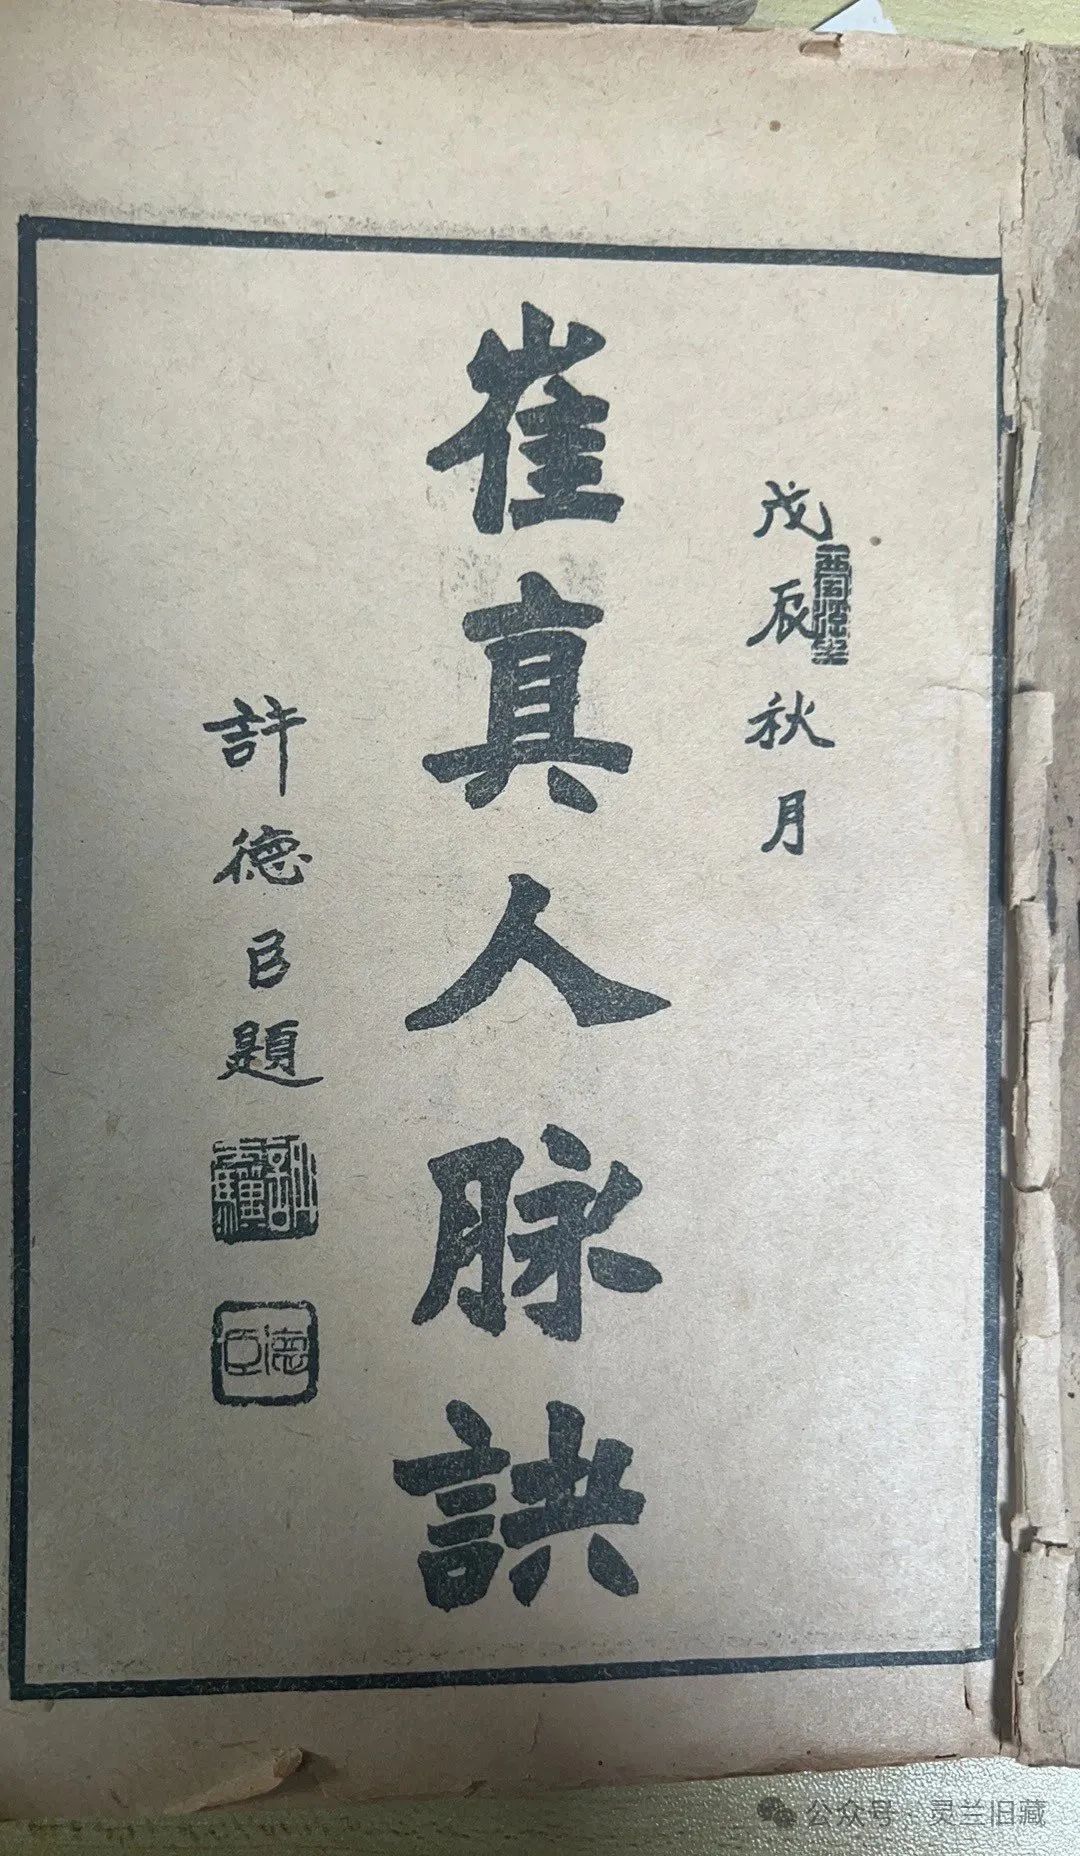 戊辰秋月
崔真人脉訣
許德臣題
德臣
公众号·灵兰旧藏